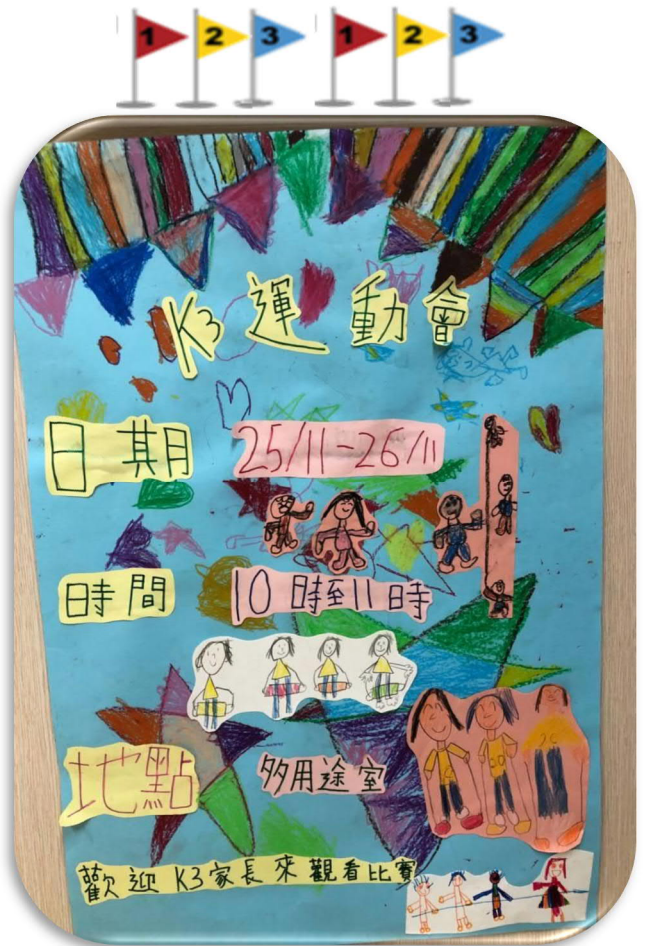 1 2 3 1 2 3
K3 運動會
日期 25/11-26/11
時間 10時至11時
地點 多用途室
歡迎K3家長來觀看比賽